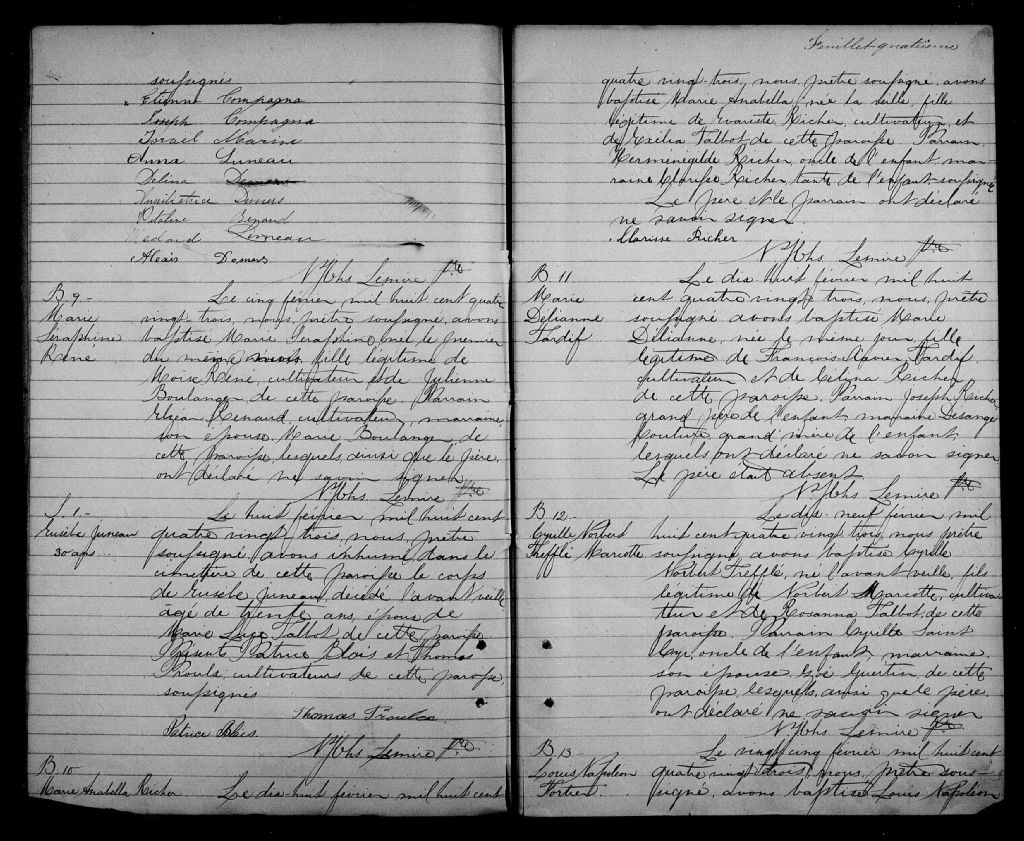 soussignés
Etienne Compagna
Joseph Compagna
Israel Marine
Anna Luneau
Delina Demers
Demers
Bernard
Lineau
Alexis Demers
N. Hhs Lemire Ptre
B. 9.-
Marie
Séraphine
René
Le cinq février mil huit cent quatre
vingt trois, nous, prêtre soussigné, avons
baptisé Marie Séraphine, née le premier
du même mois fille légitime de
Moïse René, cultivateur et de Julienne
Boulanger de cette paroisse Parrain
Renaud, cultivateur, marraine
son epouse Marie Boulanger, de
cette paroisse, lesquels, ainsi que le père,
ont déclaré ne savoir signer
N. Hhs Lemire Ptre
S. 1.-
Eusèbe Juneau
30 ans
Le huit février mil huit cent
quatre vingt trois, nous, prêtre
soussigné, avons inhumé dans le
cimetière de cette paroisse le corps
de Eusèbe Juneau, décédé l'avant veille
âgé de trente ans, époux de
Marie Luce Talbot de cette paroisse.
Présents Patrice Blais et Thomas
Proulx, cultivateurs de cette paroisse,
soussignés
Thomas Proulx
Patrice Blais.
N. Hhs Lemire Ptre
B. 10
Marie Anabella Richer
Le dix-huit février mil huit cent
Feuillet quatrième
quatre vingt-trois, nous, prêtre soussigné, avons
baptisé Marie Anabella, née la veille, fille
légitime de Evariste Richer, cultivateur, et
de Exilia Talbot de cette paroisse Parrain
Herménégilde Richer, oncle de l'enfant mar-
raine Clarisse Richer, tante de l'enfant soussignée
Le père et le parrain ont déclaré
ne savoir signer
Clarisse Richer
N. Hhs Lemire Ptre
B. 11
Marie
Délianne
Tardif
Le dix huit février mil huit
cent quatre vingt trois, nous, prêtre
soussigné avons baptisé Marie
Délianne, née le même jour fille
légitime de François-Xavier Tardif,
cultivateur et de Célina Richer
de cette paroisse. Parrain Joseph Richer
grand père de l'enfant marraine Desange
Couture grand mère de l'enfant
lesquels ont déclaré ne savoir signer
Le père était absent
N. Hhs Lemire Ptre
B. 12.-
Cyrille Norbert
Trefflé Marcotte
Le dix-neuf février mil
huit cent quatre vingt trois, nous prêtre
soussigné, avons baptisé Cyrille
Norbert Trefflé, né l'avant veille, fils
légitime de Norbert Marcotte, cultiva-
teur et de Rosanna Talbot de cette
paroisse. Parrain Cyrille Saint
Cyr, oncle de l'enfant, marraine
son epouse Zoé Guertin de cette
paroisse, lesquels, ainsi que le père,
ont déclaré ne savoir signer
N. Hhs Lemire Ptre
B. 13
Louis Napoléon
Fortier
Le vingt cinq février mil huit cent
quatre vingt trois, nous, prêtre sous-
signé, avons baptisé Louis Napoléon